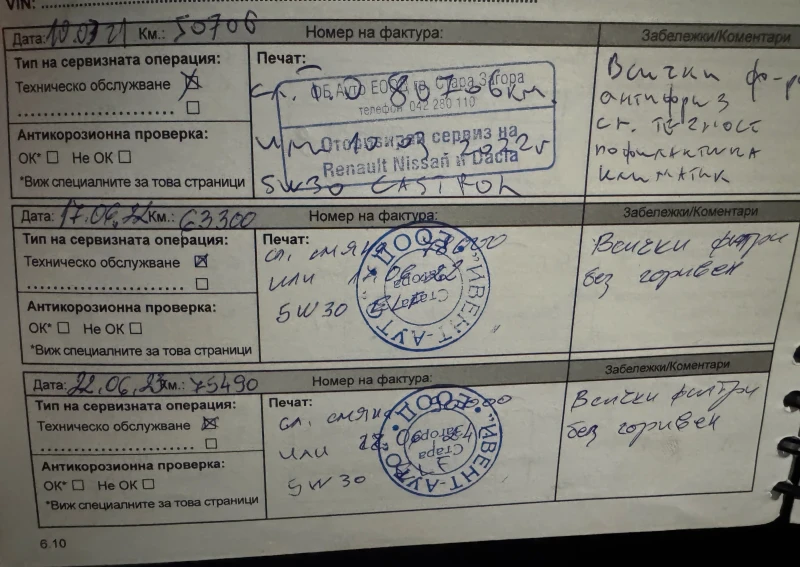 VIN:
Дата: 10.03 21 Км.: 50706 Номер на фактура: Забележки/Коментари
Тип на сервизната операция:
Техническо обслужване
Антикорозионна проверка:
ОК* Не ОК
*Виж специалните за това страници
Печат:
ФБ Ауто ЕООД гр. Стара Загора
телефон 042 280 110
Оторизиран сервиз на
Renault Nissan и Dacia
сл. 80706км.
или 10.03 2022г
5W30 CASTROL
Всички
антифриз
сп. течност
климатик
Дата: 17.06.22 Км.: 63300 Номер на фактура: Забележки/Коментари
Тип на сервизната операция:
Техническо обслужване
Антикорозионна проверка:
ОК* Не ОК
*Виж специалните за това страници
Печат:
сл. смяна
или
5W30
"ИВЕНТ-АУТО" ЕООД
Стара
Загора
Всички филтри
без горивен
Дата: 22.06.23 Км.: 75490 Номер на фактура: Забележки/Коментари
Тип на сервизната операция:
Техническо обслужване
Антикорозионна проверка:
ОК* Не ОК
*Виж специалните за това страници
Печат:
сл. смяна
или
5W30
"ИВЕНТ-АУТО" ЕООД
Стара
Загора
Всички филтри
без горивен
6.10